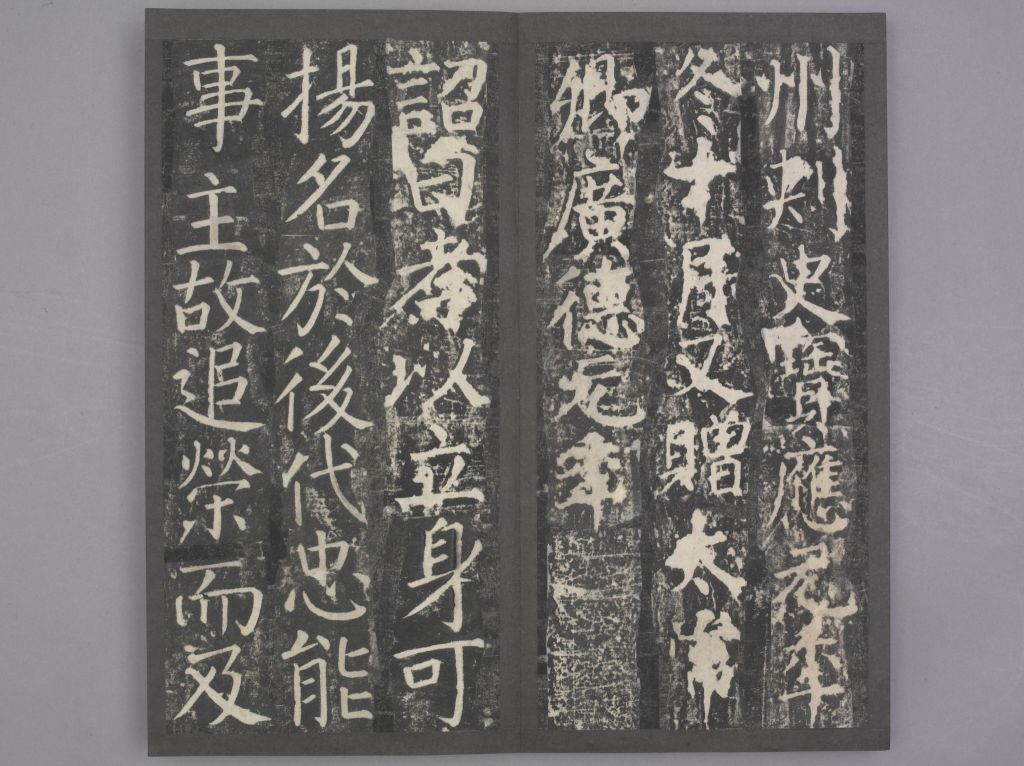 州刺史寶應元年
冬十月又贈太常
卿廣德元年
詔曰孝以立身可
揚名於後代忠能
事主故追榮而及